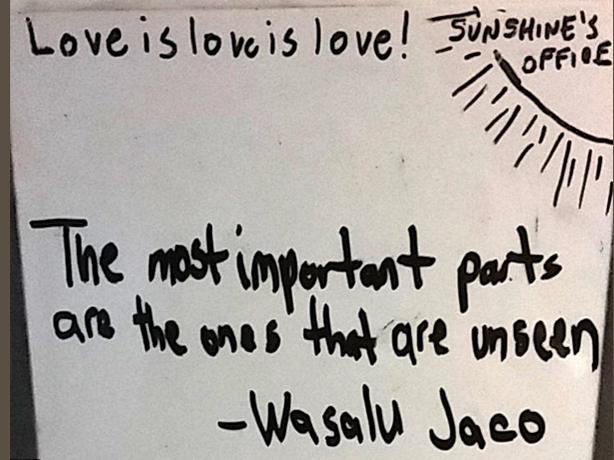 Love is love is love!
SUNSHINE'S
OFFICE
The most important parts
are the ones that are unseen
-Wasalu Jaco